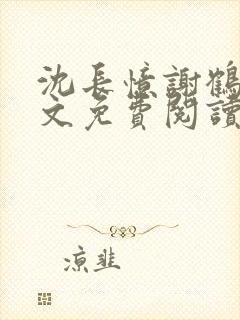 沈長憶謝鶴
文免費閱讀
涼韭